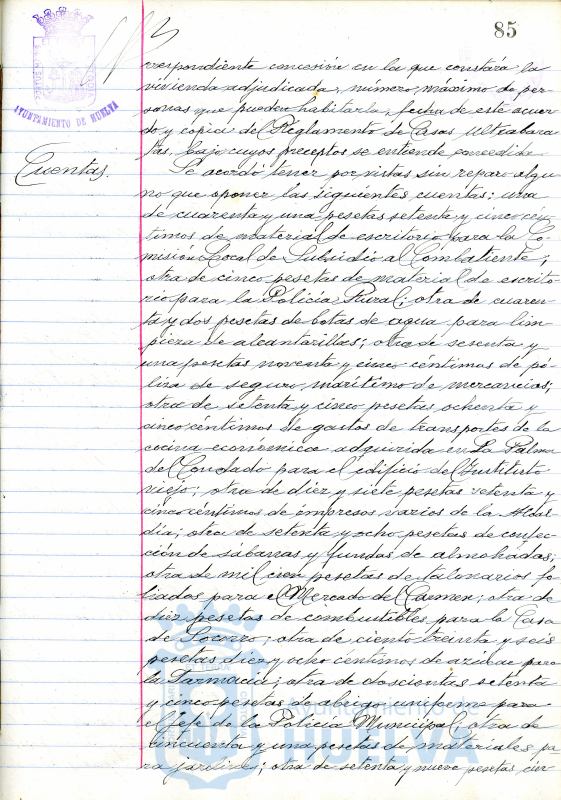 85
AYUNTAMIENTO DE HUELVA
rrespondiente concesión en la que constará la
vivienda adjudicada, número máximo de per-
sonas que pueden habitarla, fecha de este acuer-
do y copia del Reglamento de Casas Ultrabara-
tas, bajo cuyos preceptos se entiende concedida.
Cuentas.
Se acordó tener por vistas sin reparo algu-
no que oponer las siguientes cuentas: una
de cuarenta y una pesetas setenta y cinco cén-
timos de material de escritorio para la Co-
misión Local de Subsidio al Combatiente;
otra de cinco pesetas de material de escrito-
rio para la Policía Rural; otra de cuaren-
ta y dos pesetas de botas de agua para lim-
pieza de alcantarillas; otra de sesenta y
una pesetas noventa y cinco céntimos de pó-
liza de seguro marítimo de mercancías;
otra de setenta y cinco pesetas ochenta y
cinco céntimos de gastos de transportes de la
cocina económica adquirida en La Palma
del Condado para el edificio del Instituto
viejo; otra de diez y siete pesetas setenta y
cinco céntimos de impresos varios de la Alcal-
día; otra de setenta y ocho pesetas de confec-
ción de sábanas y fundas de almohadas;
otra de mil cien pesetas de talonarios fo-
liados para el Mercado del Carmen; otra de
diez pesetas de combustibles para la Casa
de Socorro; otra de ciento treinta y seis
pesetas diez y ocho céntimos de azúcar para
la Farmacia; otra de doscientas setenta
y cinco pesetas de abrigo uniforme para
el Jefe de la Policía Municipal; otra de
cincuenta y una pesetas de materiales pa-
ra jardines; otra de setenta y nueve pesetas cin-
Ayuntamiento de
HUELVA